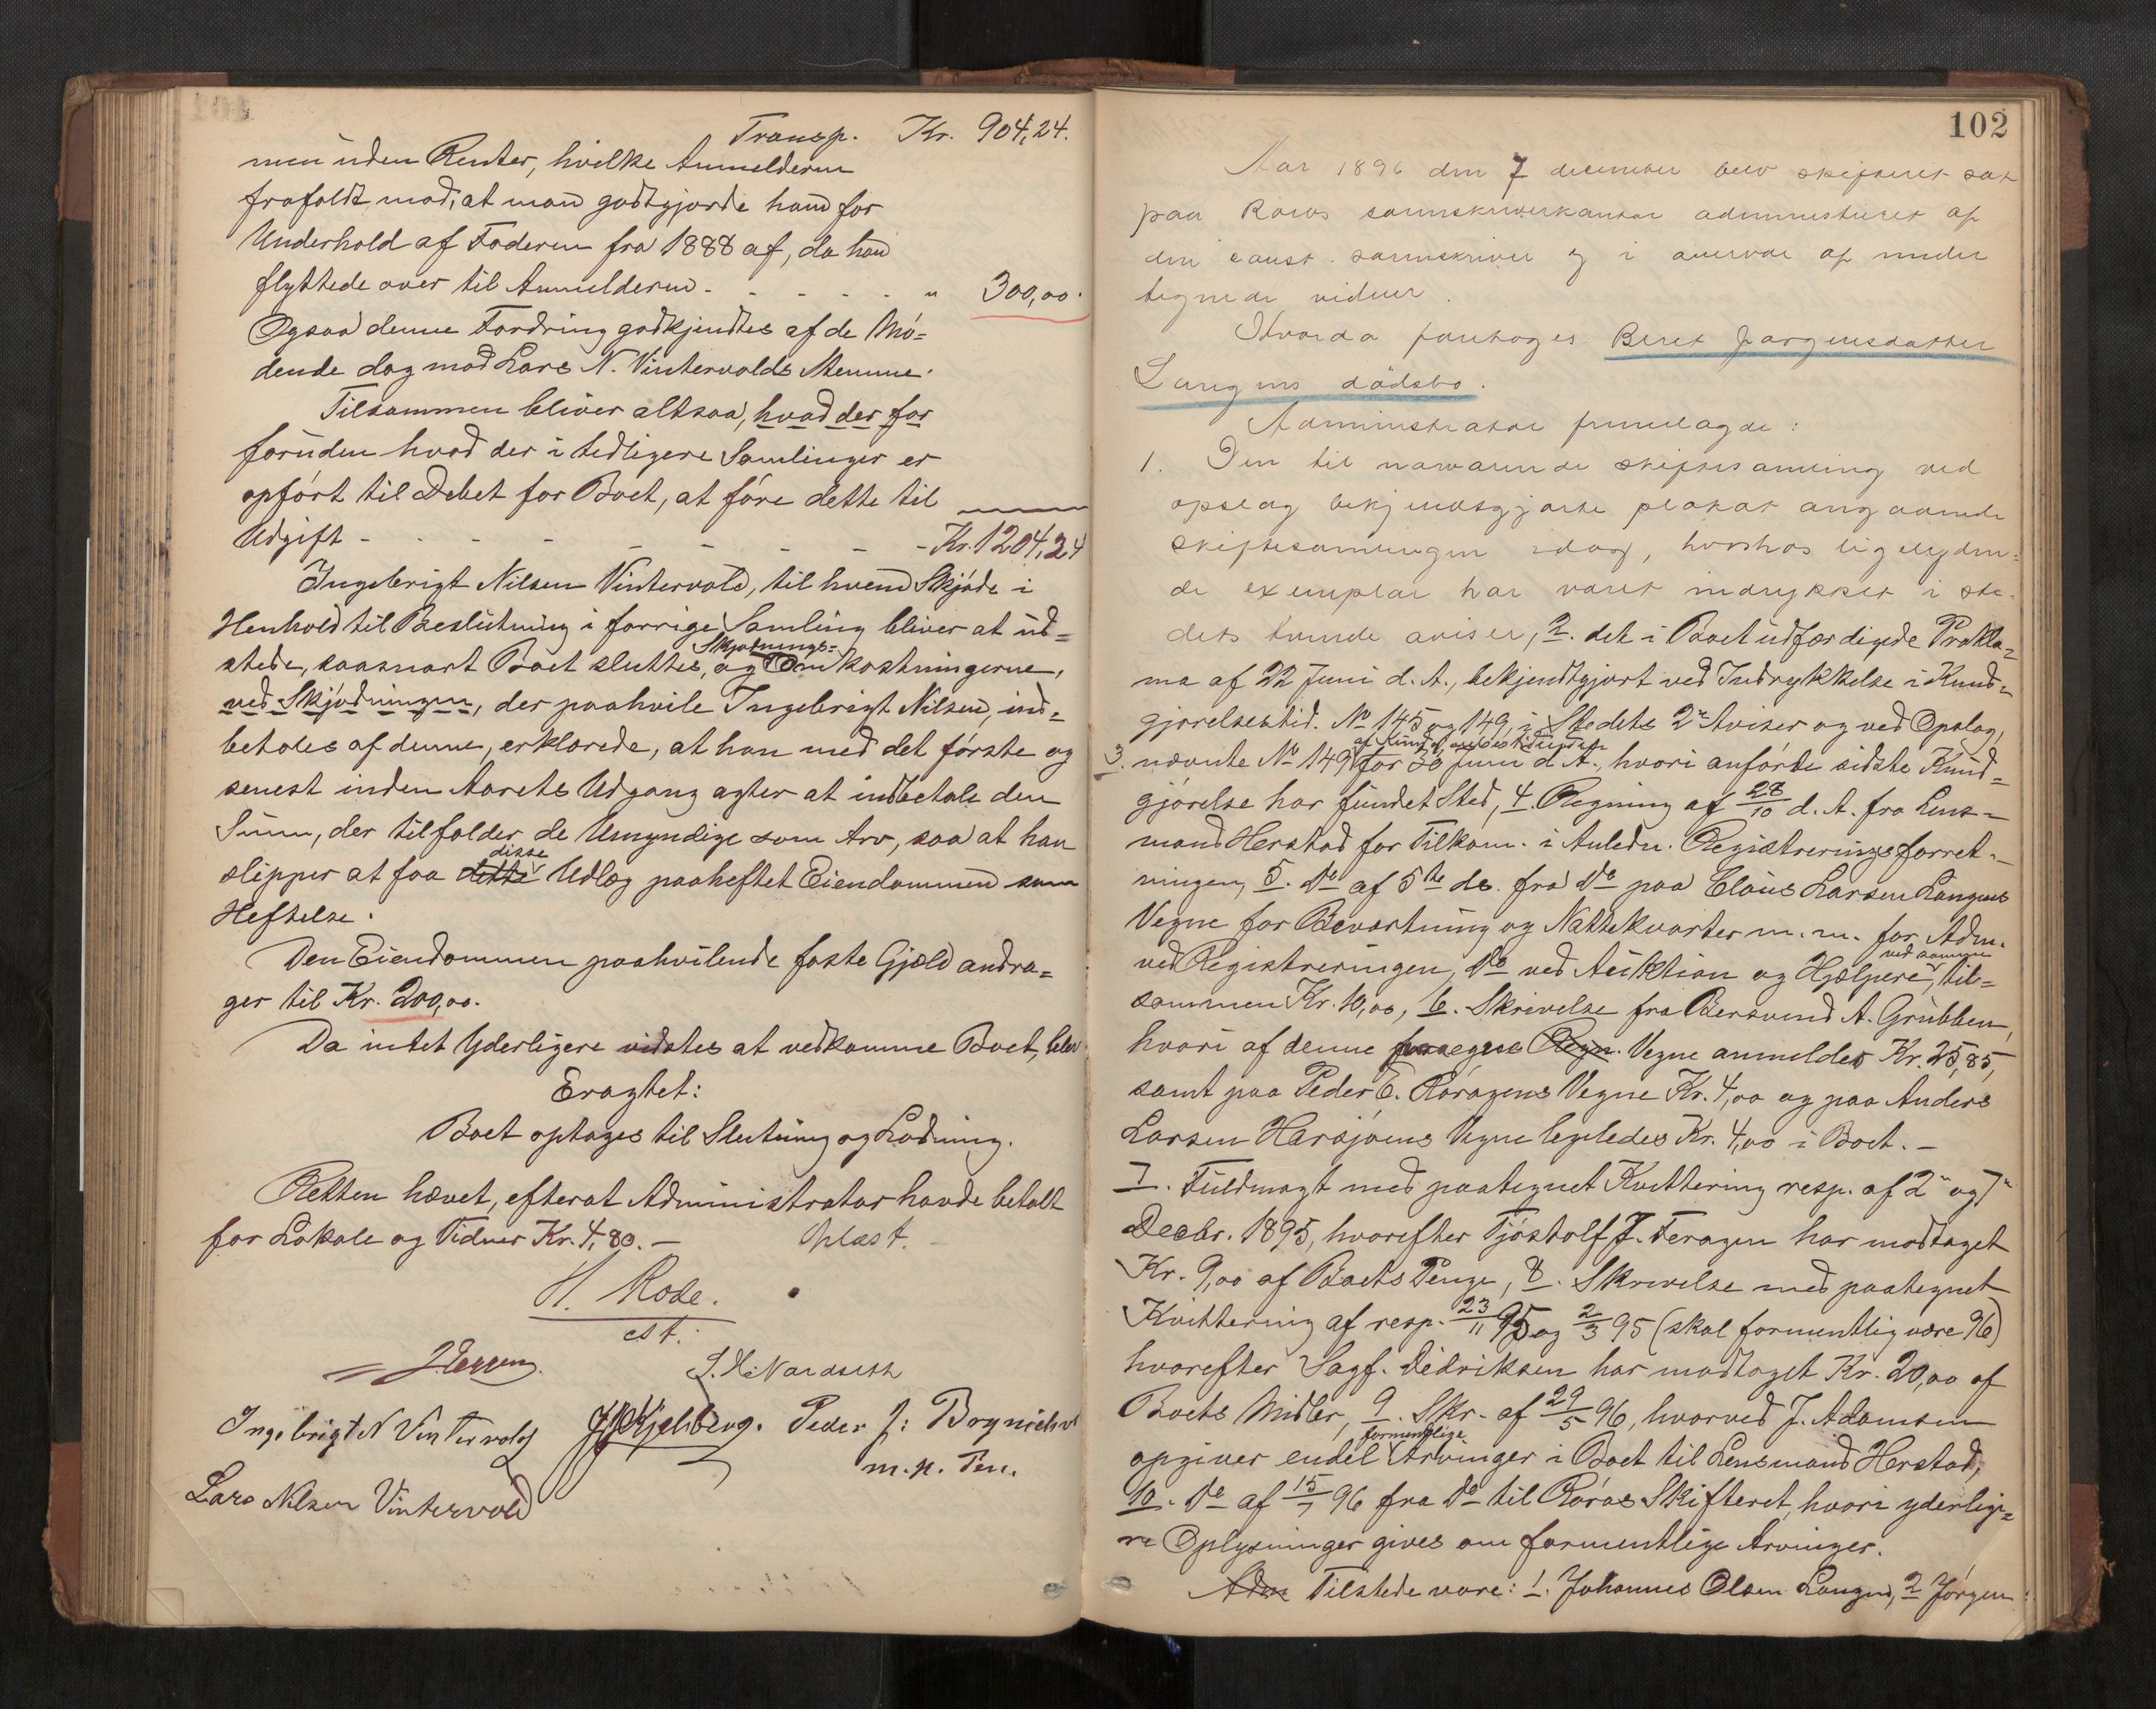 Transp. Kr. 904,24.
men uden Renter, hvilke Anmelderen
frafaldt mod, at man godtgjorde ham for
Underhold af Faderen fra 1888 af, da han
flyttede over til Anmelderen - - - - - " 300,00.
Ogsaa denne Fordring godkjendtes af de Mö=
dende dog mod Lars N. Vintervolds Stemme.
Tilsammen bliver altsaa, hvad der for
foruden hvad der i tidligere Samlinger er
opfört til Debet for Boet, at före dette til
Udgift - - - - - - - - - Kr. 1204,24
Ingebrigt Nilsen Vintervold, til hvem Skjöde i
Henhold til Beslutning i forrige Samling bliver at ud=
stede, saasnart Boet sluttes, og Skjödnings= Omkostningerne,
ved Skjödningen, der paahvile Ingebrigt Nilsen, ind=
betales af denne, erklærede, at han med det förste og
senest inden Aarets Udgang agter at indbetale den
Sum, der tilfalder de Umyndige som Arv, saa at han
slipper at faa dette disse Udlæg paaheftet Eiendommen som
Heftelse.
Den Eiendommen paahvilende faste Gjæld andra=
ger til Kr. 200,00.
Da intet Yderligere vidstes at vedkomme Boet, blev
Eragtet:
Boet optages til Slutning og Lodning.
Retten hævet, efterat Administrator havde betalt
for Lokale og Vidner Kr. 4,80. — Oplæst.
H. Rode.
cst.
J. H. Nordseth
Ingebrigt N Vintervold J Kjelsberg. Peder J: Brynildsv
m. p. Pen.
Lars Nilsen Vintervold
102
Aar 1896 den 7 december blev skifteret sat
paa Röros sorenskriverkontor administreret af
den const. sorenskriver og i overvær af under
tegnede vidner.
Hvorda foretoges Beret Jörgensdatter
Langens dödsbo.
Administrator fremlagde:
1. Den til nærværende skiftesamling ved
opslag bekjendtgjorte plakat angaaende
skiftesamlingen idag, hvorhos ligelyden=
de exemplar har været indrykket i ste-
dets tvende aviser, 2. det i Boet udfærdigede Prokla=
ma af 22 Juni d. A., bekjendtgjort ved Indrykkelse i Kund=
gjörelsestid. No 145 og 149, i Stedets 2de Aviser og ved Opslag,
3. nævnte No 149 for 30 Juni d. A., hvori anförte sidste Kund=
gjörelse har fundet Sted, 4. Regning af 28/10 d. A. fra Lens=
mand Herstad for Tilkom. i Anledn. Registreringsforret-
ningen, 5. do af 5te ds. fra do paa Claus Larsen Langens
Vegne for Beværtning og Nattekvarter m. m. for Adm.
ved Registreringen, do ved Auktion og Hjælpere ved samme, til=
sammen Kr. 10,00, 6. Skrivelse fra Bersvend A. Grubben,
hvori af denne paa egne Regn. Vegne anmeldes Kr. 25,85,
samt paa Peder E. Röragens Vegne Kr. 4,00 og paa Anders
Larsen Harsjöens Vegne legeledes Kr. 4,00 i Boet. —
7. Fuldmagt med paategnet Kvittering resp. af 2" og 7"
Decbr. 1895, hvorefter Tjöstolf J. Feragen har modtaget
Kr. 9,00 af Boets Penge, 8. Skrivelse med paategnet
Kvittering af resp. 23/11 95 og 2/3 95 (skal formentlig være 96)
hvorefter Sagf. Didriksen har modtaget Kr. 20,00 af
Boets Midler, 9. Skr. af 29/5 96, hvorved J. Adamsen
opgiver endel formentlige Arvinger i Boet til Lensmand Herstad,
10. do af 15/7 96 fra do til Röros Skifteret, hvori yderlige=
re Oplysninger gives om formentlige Arvinger.
Adm Tilstede vare: 1. Johannes Olsen Langen, 2 Jörgen